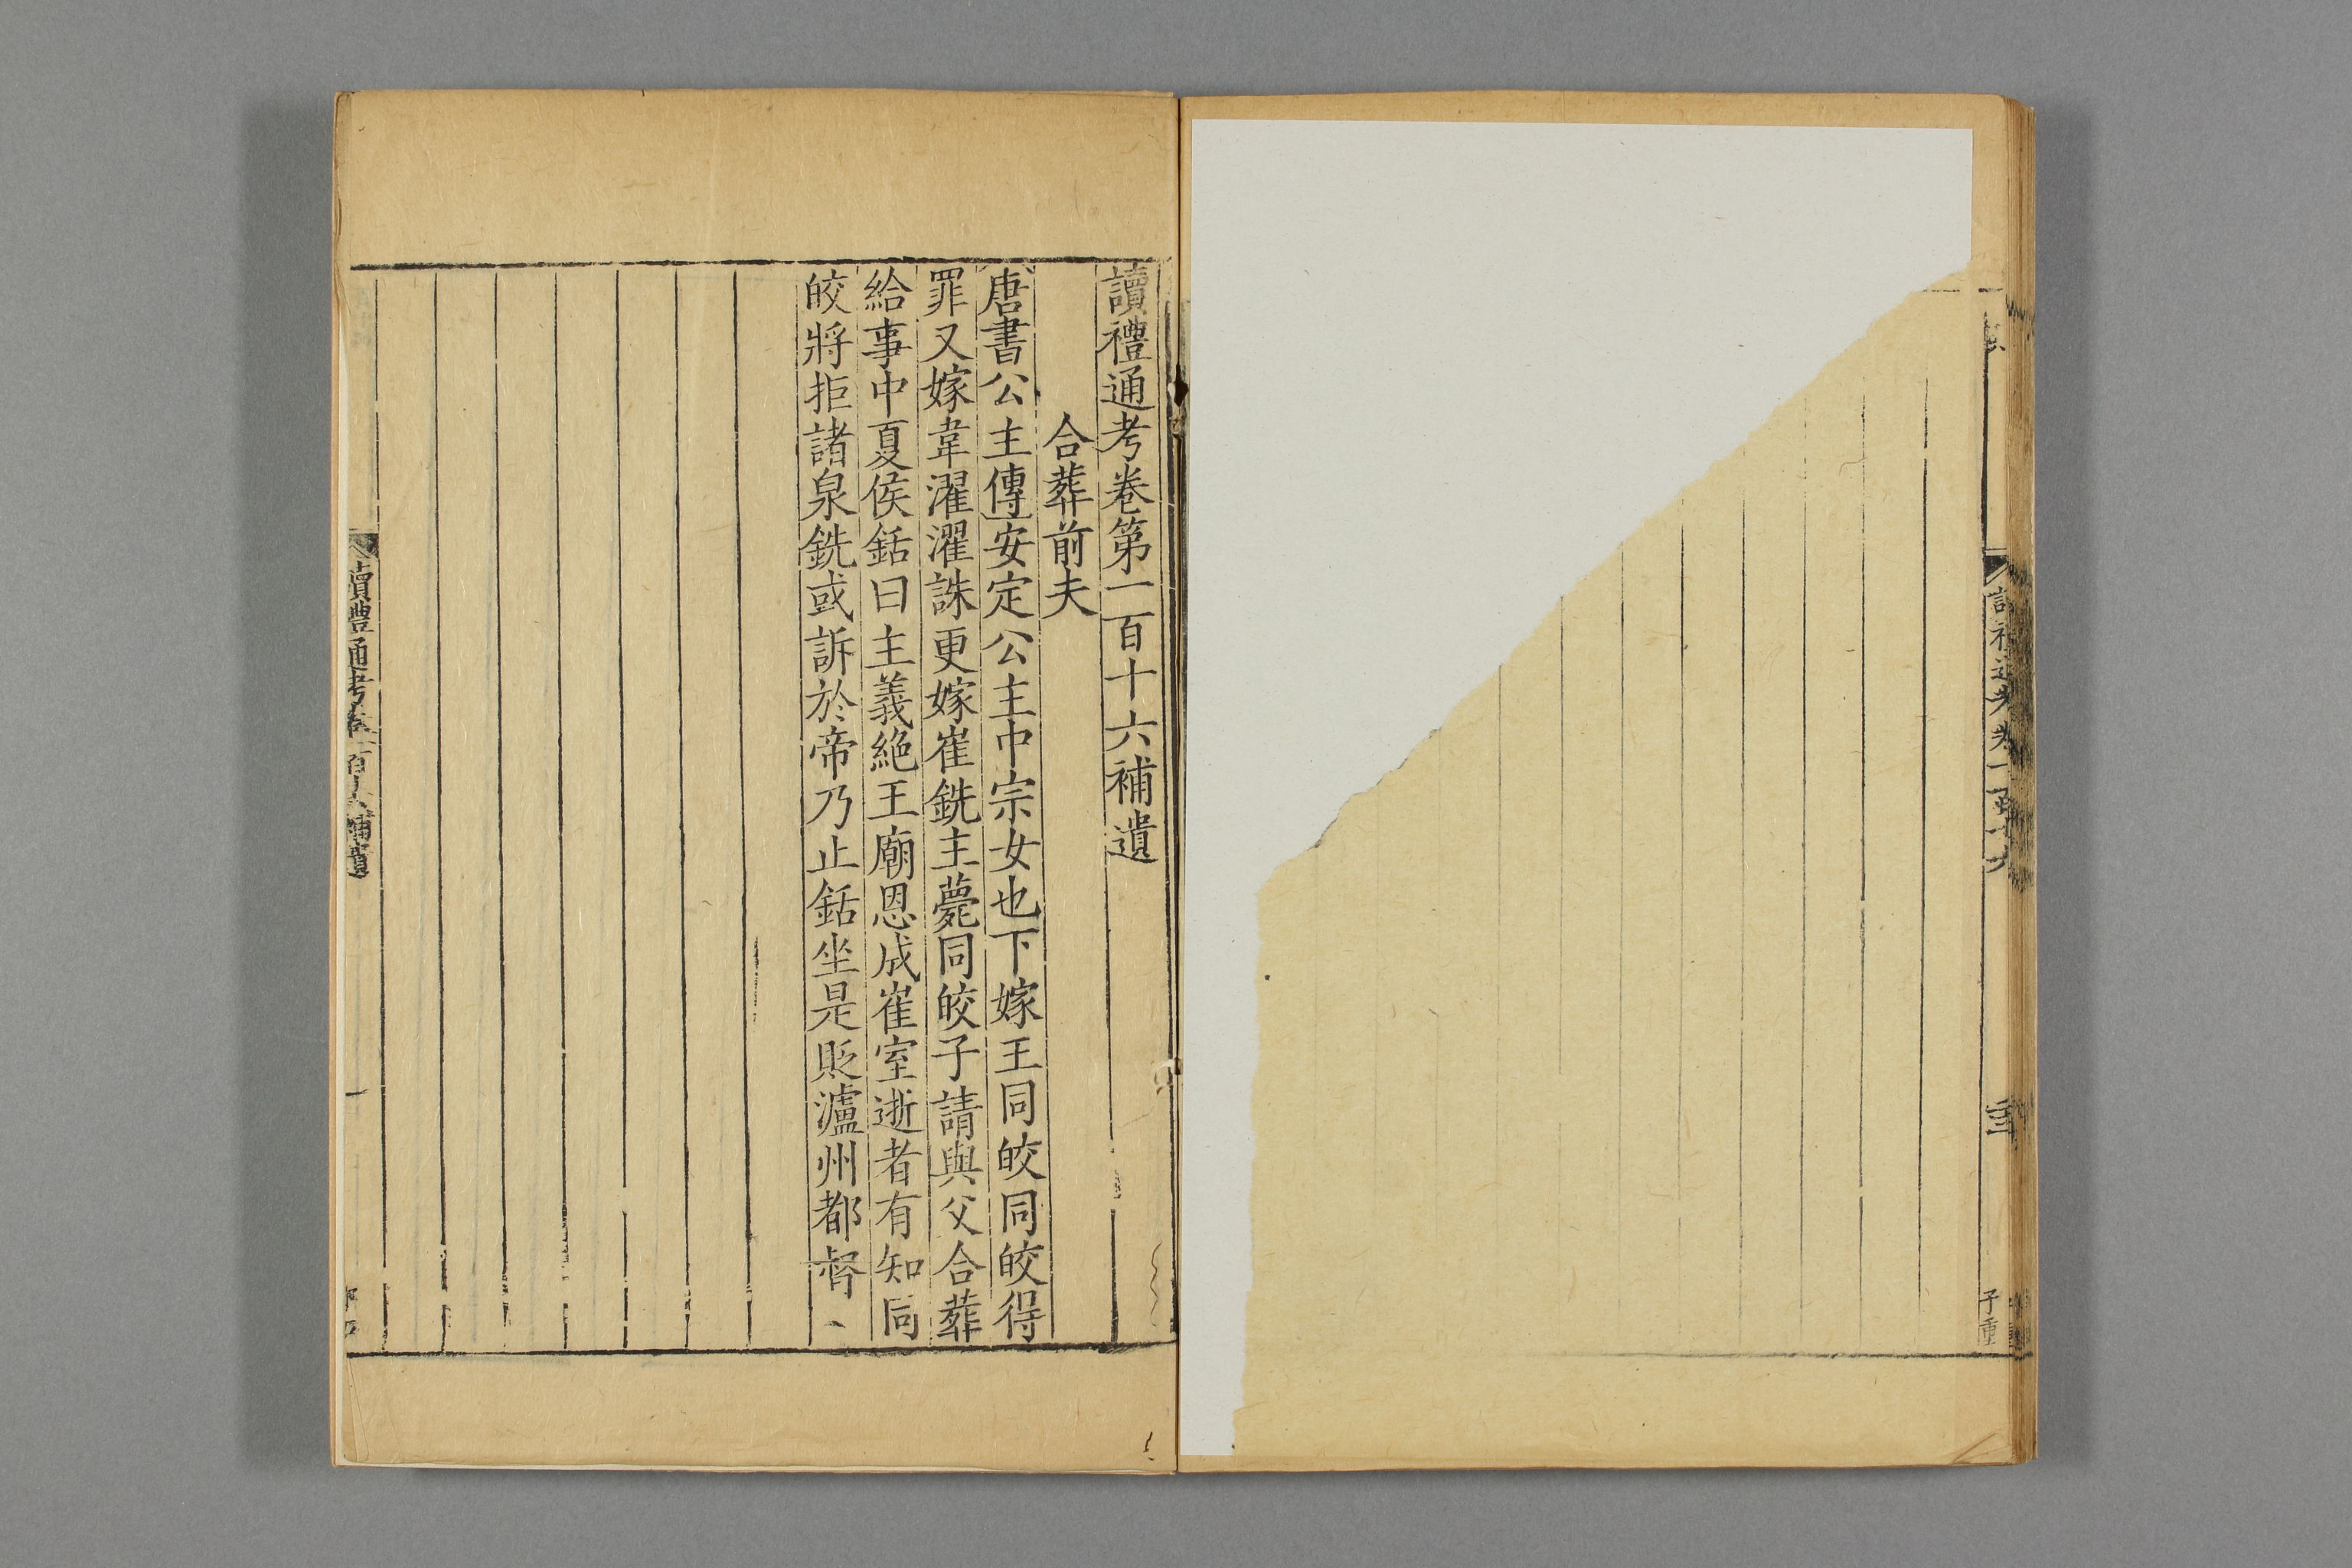 讀禮通考卷第一百十六補遺
合葬前夫
唐書公主傳安定公主中宗女也下嫁王同皎同皎得
罪又嫁韋濯濯誅更嫁崔銑主薨同皎子請與父合葬
給事中夏侯銛曰主義絶王廟恩成崔室逝者有知同
皎將拒諸泉銑或訴於帝乃止銛坐是貶瀘州都督
讀禮通考卷一百十六補遺
一
子重